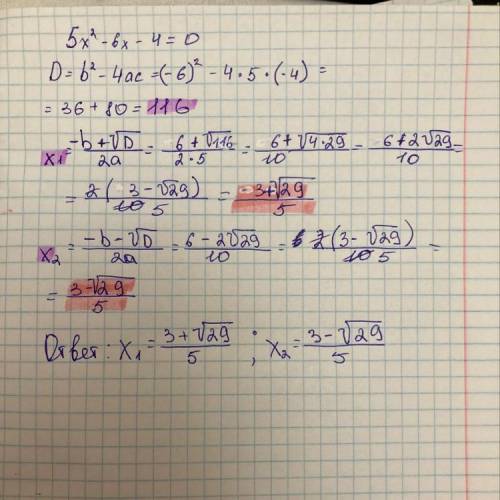 5x² - 6x - 4 = 0
D = b² - 4ac = (-6)² - 4·5·(-4) =
= 36 + 80 = 116
x₁ = (-b + √D)/2a = (6 + √116)/(2·5) = (6 + √(4·29))/10 = (6 + 2√29)/10 =
= 2(3 - √29)/10 5 = (3 + √29)/5
x₂ = (-b - √D)/2a = (6 - 2√29)/10 = 2(3 - √29)/10 5 =
= (3 - √29)/5
Ответ: x₁ = (3 + √29)/5 ; x₂ = (3 - √29)/5